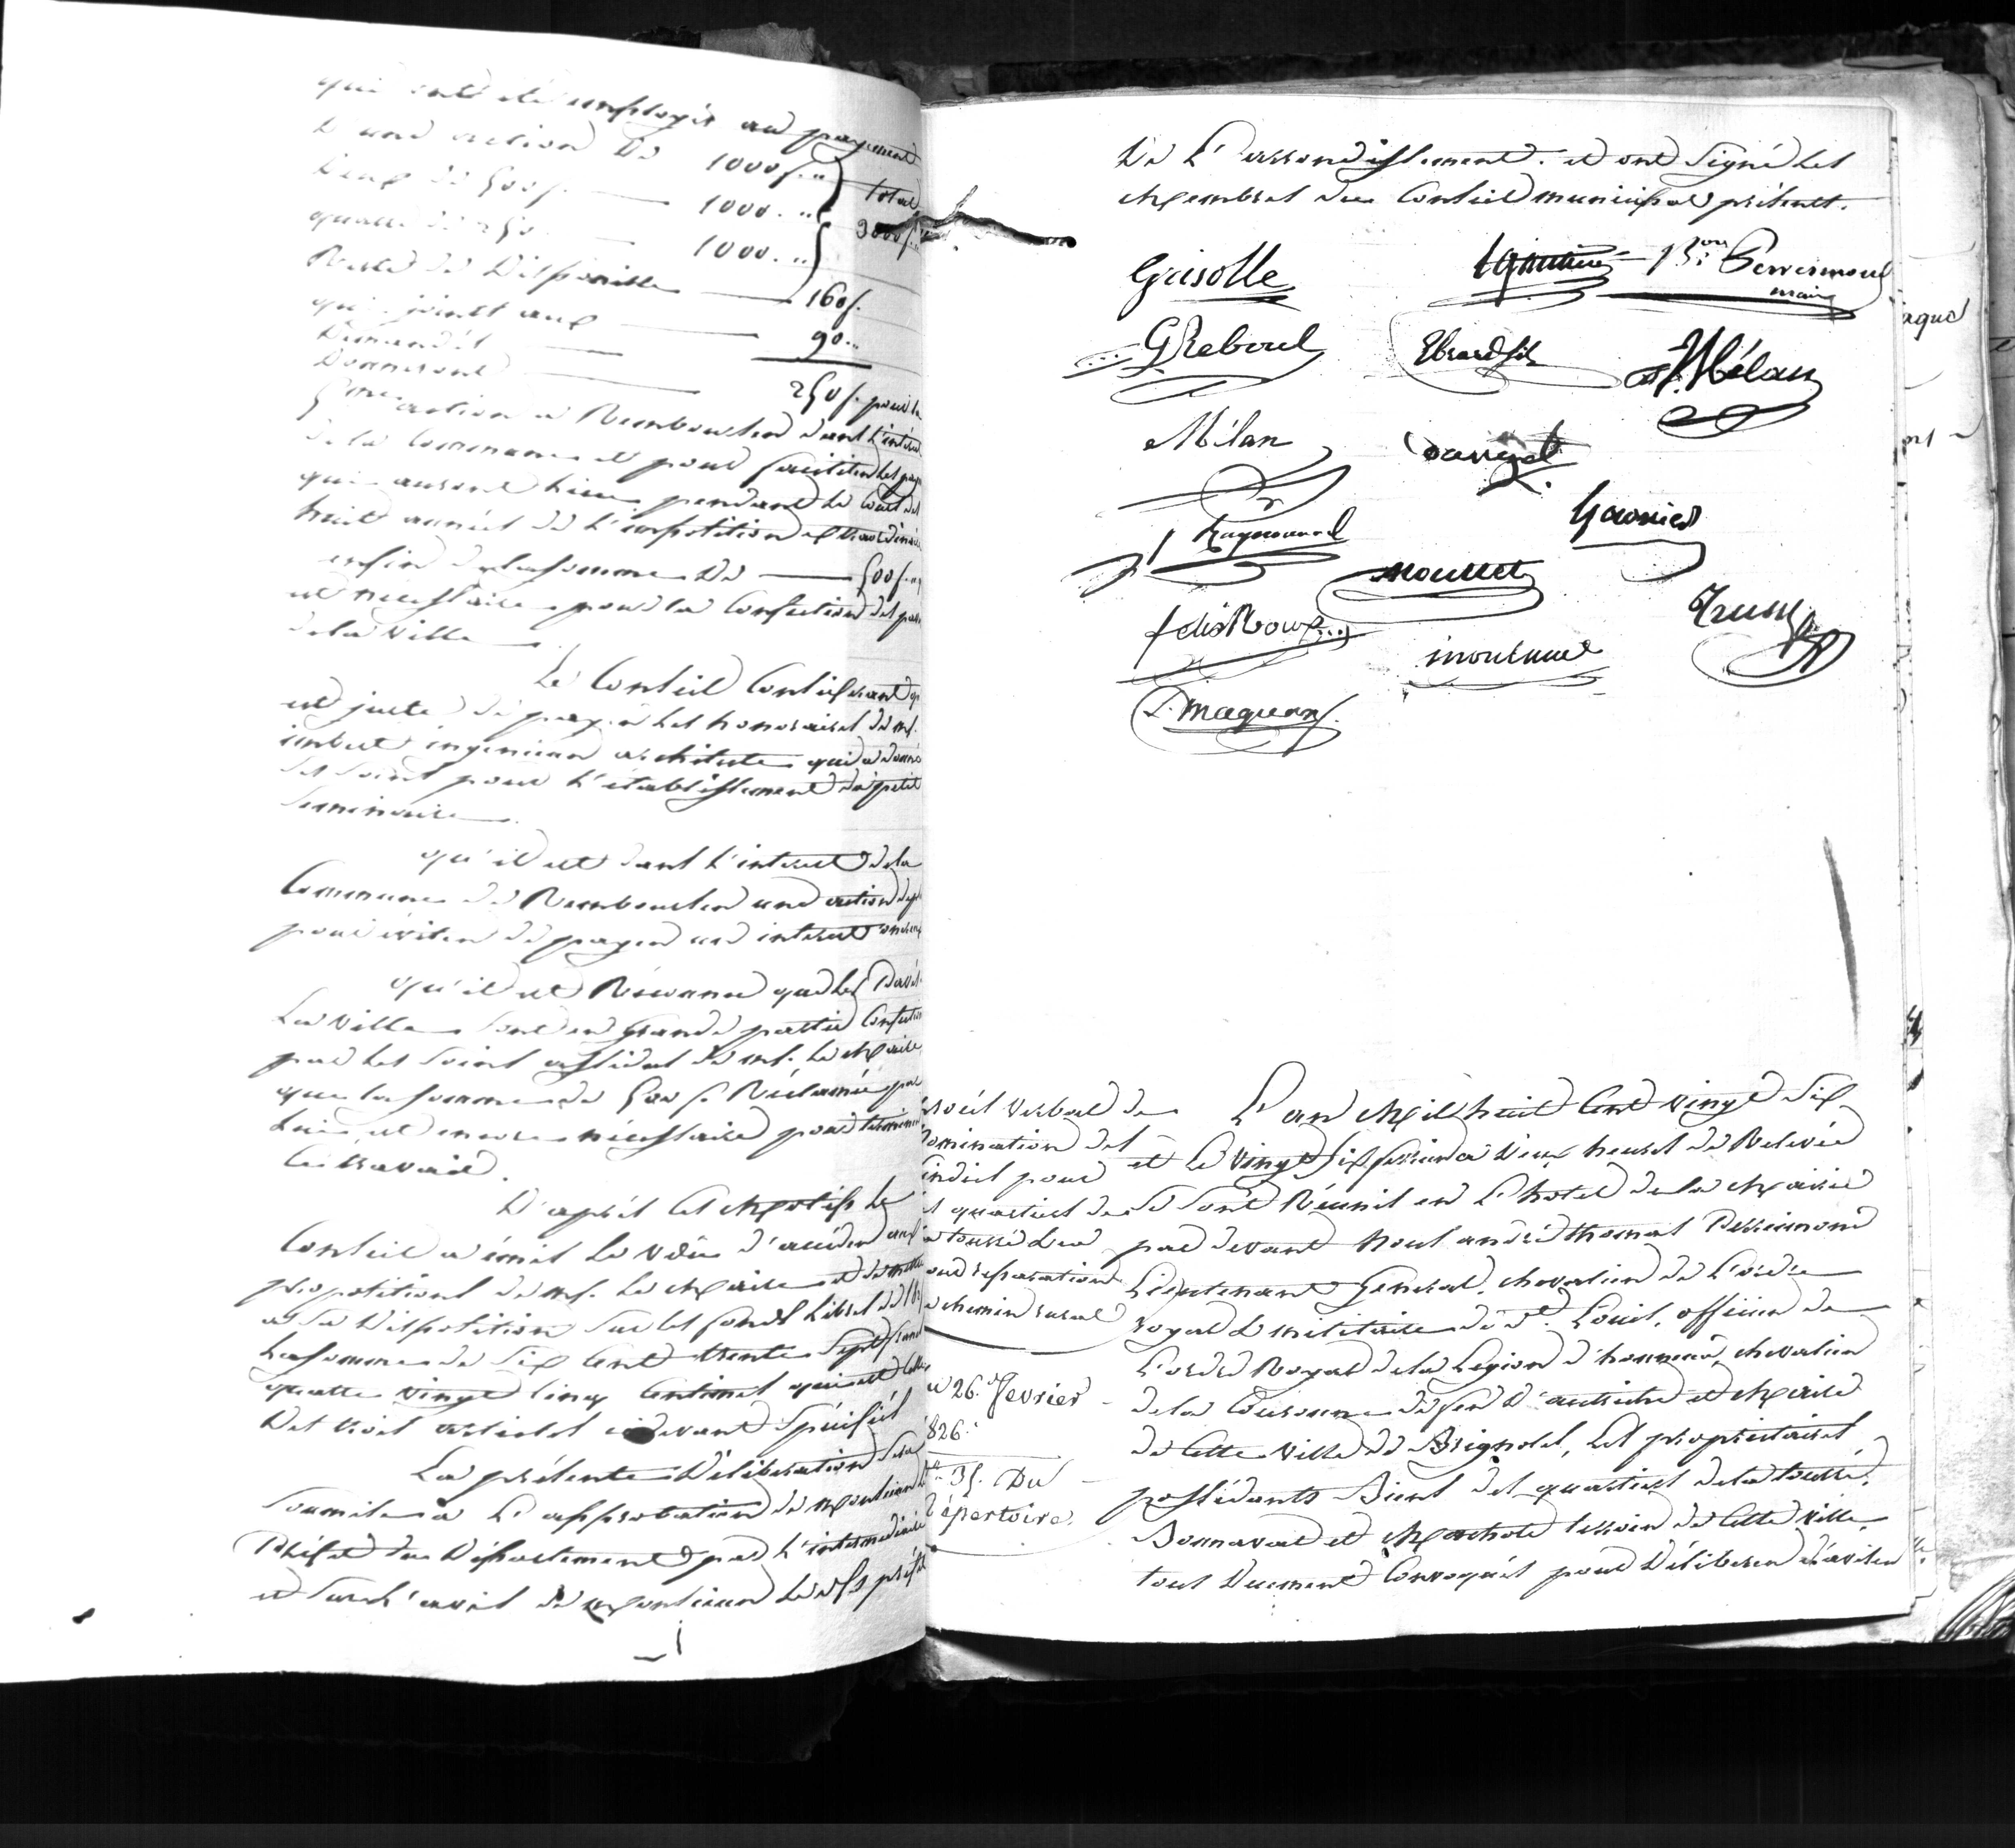 qui ont été employés au payement
d'une action de 1000 f. ..
deux de 500 f. 1000. .. total
quatre de 250 1000. .. 3000 f. ..
Reste de Disponible 160 f.
qui joints aux 90 ..
Demandés
Donneront 250 f. pour la
action a Rembourser dans l'intérêt
de la Commune et pour faciliter les
qui auront lieu pendant le Cours des
huit années de l'imposition extraordinaire
enfin de la somme de 500 f. ..
est necessaire pour la Confection des
de la ville
Le Conseil Considerant
est juste de payer les honoraires de mr.
imbert ingenieur architecte qui a donné
ses soins pour l'établissement du petit
Seminaire
qu'il est dans l'interest de la
Commune de Rembourser une action
pour éviter de payer un interest onereux
qu'il est Reconnu que les Pavés
La ville sont en grande partie
par les soins assidus de mr. Le Maire
que la somme de 500 f. Réclamée par
lui, est encore nécessaire pour terminer
Ce travail.
D'après Ces Motifs Le
Conseil a émis Le vœu d'accéder aux
propositions de mr. Le Maire et de mettre
a Sa Disposition sur les fonds Libres de
La somme de Six Cent trente Sept francs
quatre vingt Cinq Centimes qui est
Des trois articles cidevant Spécifiés
La présente Délibération sera
Soumise a L'approbation de Monsieur le
Préfet du Département par L'intermediaire
et Sur l'avis de Monsieur Le Ss préfet
De L'arrondissement. et ont Signé Les
Membres du Conseil municipal présents.
Grisolle Bon Perreimond
maire
G Reboul Ebrard fils Mélan
Mélan
Raymond Garnier
mouttet
felix Roux
Maquan
Procès Verbal de
nomination des
sindics pour
les quartiers de
la tousse &ca
pour reparation
du chemin rural
du 26. Fevrier
1826.
N° 35. Du
Répertoire.
L'an Mil huit Cent vingt Six
et Le vingt Six fevrier a Deux heures de Relevée
Se Sont Réunis en L'hotel de la Mairie
par devant Nous andré thomas Perreimond
Lieutenant General, chevalier de L'ordre
royal & militaire de St. Louis, officier de
L'ordre Royal de la Legion d'honneur, chevalier
de la Couronne de fer D'autriche et Maire
de Cette ville de Brignoles, Les proprietaires
possédants Biens des quartiers de la tousse,
Bonnaval et terroir de Cette ville,
tous Duement Convoqués pour Déliberer